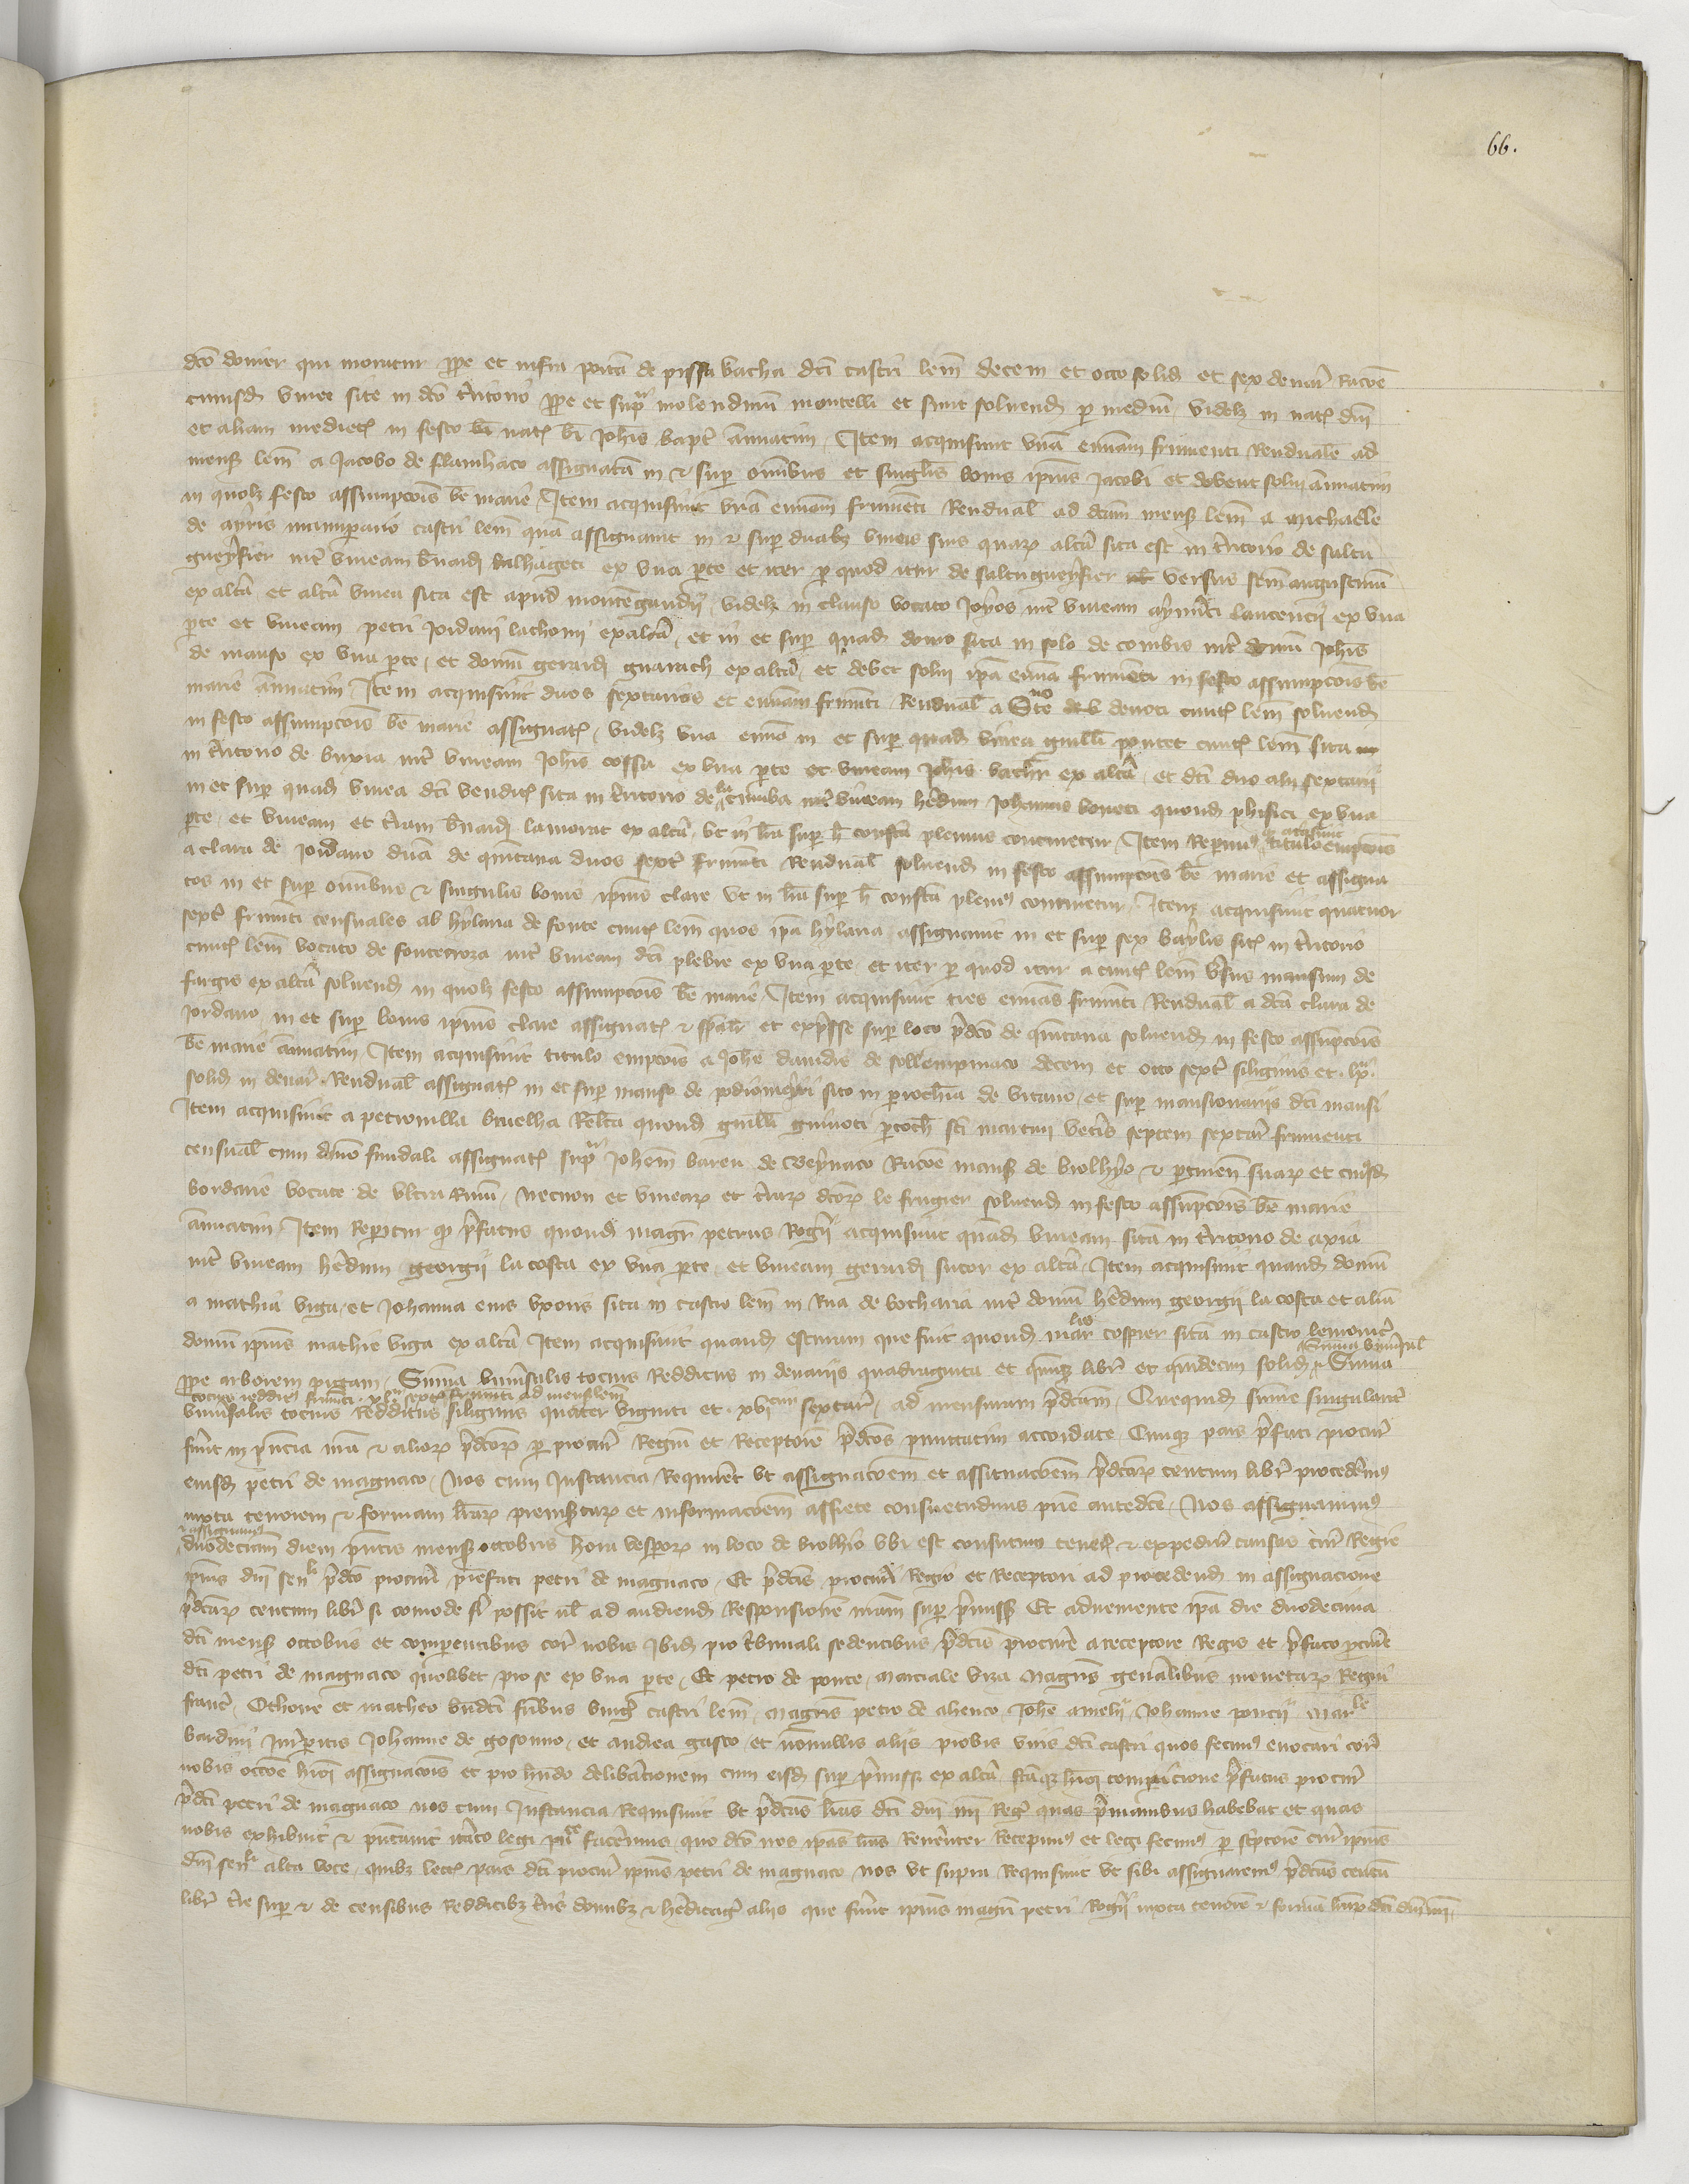 66.
dco domer qui moratur ppe et infra portā de pissa vacha dci castri lem decem et octo solid et sex denar racōe
cuiusd vinee site in dco tritorio ppe et supra molendinū montelli et sunt solvend p mediū videlz in nat dni
et aliam mediet in festo bi nat bi Johis bapt annuatim Item acquisiuit unā eminam frumenti rendualē ad
mens lem a Jacobo de flamhaco assignatā in et sup omnibus et singlis bonis ipius Jacobi et debent solui annuatim
in quolz festo assumpcois be marie Item acquisiuit unā eminam frumenti rendual ad dcam mens lem a michaele
de ayris manuparario castri lem quā assignauit in et sup duabz vineis suis quarz altera sita est in tritorio de saltu
gueyfier int vineam bnardi balhageti ex una parte et iter p quod itur de saltu gueyfier versus scm augustinū
ex altā et altā vinea sita est apud montegaudij videlz in clauso vocato Joyos int vineam aymici laurencij ex una
pte et vineam petri Jordani lathomi ex altā et in et sup quad domo sita in solo de combis int domū Johis
de manso ex una pte et domū gerardi guarach ex altā et debet solui ipa emina frumenti in festo assumpcois be
marie annuatim Item acquisiuit duos sextarios et eminam frumti rendual a Steno devoti ciuit lem soluend
in festo assumpcois be marie assignat videlz una emina in et sup quad vinea guilli poncet ciuit lem sita
in tritorio de buxia int vineam Johis cossa ex una pte et vineam Johis bachlr ex altā et dci duo alij sextarii
in et sup quad vinea dci vendit sita in tritorio de la cumba int vineam hedum Johannis boneti quond phisici ex una
pte et vineam et tram bnardi lamorat ex altā ut in lra sup h confta plenius continetur Item repimus titulo empcois
a clara de Jordano dna de quintana duos sext frumti rendual soluend in festo assumpcois be marie et assigna
tos in et sup omnibus et singulis bonis ipius clare ut in lra sup h confta plenius continetur Item acquisiuit quatuor
sext frumti censuales ab hylaria de fonte ciuit lem quos ipa hylaria assignauit in et sup sex baylis sit in tritorio
ciuit lem vocato de fontenroza int vineam dci plebis ex una pte et iter p quod itur a ciuit lem vsus mansum de
fargis ex altā soluend in quolz festo assumpcois be marie Item acquisiuit tres eminas frumti rendual a dca clara de
Jordano in et sup bonis ipius clare assignat et spalr et expsse sup loco pdco de quintana soluend in festo assumpcois
be marie annuatim Item acquisiuit titulo empcois a Johe dauidis de sollempniaco decem et octo sext siliginis et lx
solid in denar rendual assignat in et sup manso de podiomeyri sito in parochia de vicano et sup mansionariis dci mansi
Item acquisiuit a petronilla bruelha relcta quond guilli guinoti parroch sci marcij vetis septem sextar frumenti
censual cum dnio fundali assignat supra Johem baren de Veynaco racōe mansi de violhyo et pertinen suarz et cuiusd
bordarie vocate de ultra rivū necnon et vinearz et trarz dcorz le frugier soluend in festo assupcois be marie
annuatim Item repitur q prefatus quond magr petrus rogij acquisiuit quad vineam sitā in tritorio de axia
int vineam hedum georgij la costa ex una pte et vineam gerardi sutor ex altā Item acquisiuit quand domū
a mathia viga et Johanna eius uxoris sita in castro lem in rua de bocharia int domū hedum georgij la costa et aliā
domū ipius mathie viga ex altā Item acquisiuit quand escuram que fuit quond marlis cospier sitā in castro lemouic
ppe arborem pictam Suma universalis tocius redditus in denariis quadraginta et quinqz libr et quindecim solid Suma universal
tocius redditus frumti xlta sext frumti ad mens lem Suma
universalis tocius redditus siliginis quater viginti et xvcim sextar ad mensuram pdcam Quequid sume singulariter
fuit in pncia nra et aliorz pdcorz p procur regiū et receptorē pdcos punctatim accordate Cumqz pars pfati procur
eiusd petri de magnaco nos cum instancia requirēt ut assignacoem et assituacoem pdcarz centum libr procedemus
iuxta tenorem et formam lrarz premissarz et informacoem assiete consuetudinis prie antedcte Nos assignauimus
et assignamus
duodecimam diem pntis mensis octobris hora vesporz in loco de violhio ubi est consuetum teneri et expediri causas curie regie
ipius dni senli pdco procuri prefati petri de magnaco Et pdcis procuri regio et receptori ad procedend in assignacione
pdcarz centum libr si comode fi possit ul ad audiend responsionē nram sup pmiss Et adueniente ipa die duodecima
dci mensis octobris et comparentibus corā nobis ibid pro tribunali sedentibus pdcis procure areceptore regis et pfato procure
dci petri de magnaco quolibet pro se ex una parte Et petro de ponte marciale viza magris genalibus monetarz regni
franc Othone et matheo bndci fribus burgens castri lem magris petro de alienco Johe amelij Johanne poncij marle
bardini Jurisperitis Johanne de gosonno et andrea gasco et nonnullis aliis probis viris dci castri quos fecimus euocari corā
nobis occoe huiusmodi assignacois et pro habendo deliberationem cum eisd sup pmissis ex altā factaqz huiusmodi comparicione pfatus procur
pdci petri de magnaco nos cum instancia requisiuit ut pdcas lras dci dni nri regis quas pmanibus habebat et quas
nobis exhibuit et pntauit itato legi pure faceremus quo dco nos ipas lras reuerenter recepimus et legi fecimus p scptorē curie ipius
dni senli alta voce quibz lectis pars dci procur ipius petri de magnaco nos ut supra requisiuit ut sibi assignaremus pdcas centū
libr tre sup et de censibus redditibz tris domibz et hereditagiis aliis que fuit ipius magri petri rogij iuxta tenorē et formā lrarz dci dni nri